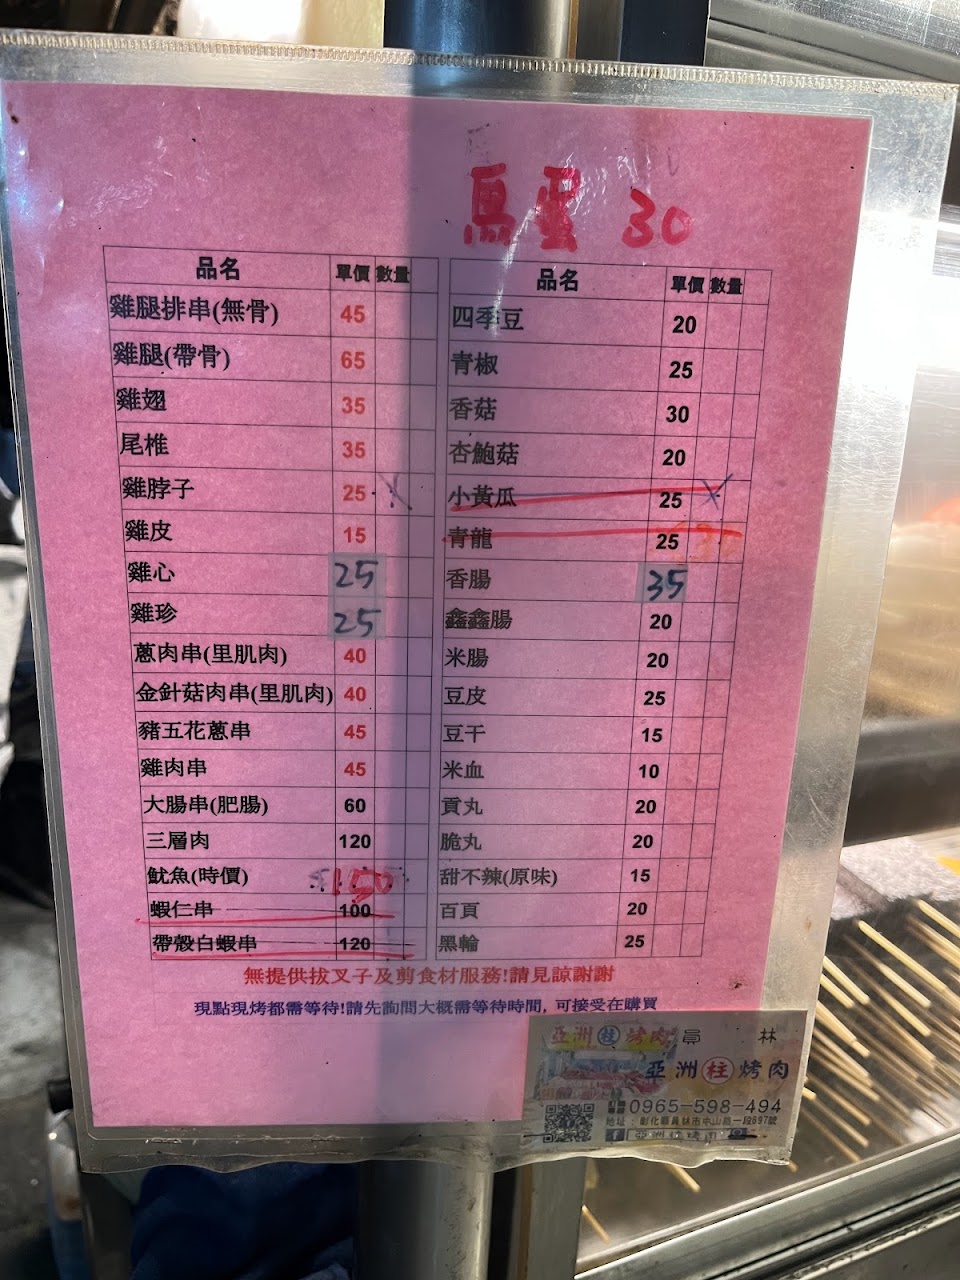 鳥蛋 30
品名 單價 數量
雞腿排串(無骨) 45
雞腿(帶骨) 65
雞翅 35
尾椎 35
雞脖子 25 X
雞皮 15
雞心 25
雞珍 25
蔥肉串(里肌肉) 40
金針菇肉串(里肌肉) 40
豬五花蔥串 45
雞肉串 45
大腸串(肥腸) 60
三層肉 120
魷魚(時價) 150
蝦仁串 100
帶殼白蝦串 120
品名 單價 數量
四季豆 20
青椒 25
香菇 30
杏鮑菇 20
小黃瓜 25 X
青龍 25
香腸 35
鑫鑫腸 20
米腸 20
豆皮 25
豆干 15
米血 10
貢丸 20
脆丸 20
甜不辣(原味) 15
百頁 20
黑輪 25
無提供拔叉子及剪食材服務!請見諒謝謝
現點現烤都需等待!請先詢問大概需等待時間, 可接受在購買
亞洲柱烤肉
員林
亞洲柱烤肉
0965-598-494
地址：彰化縣員林市中山路一段897號
亞洲柱烤肉